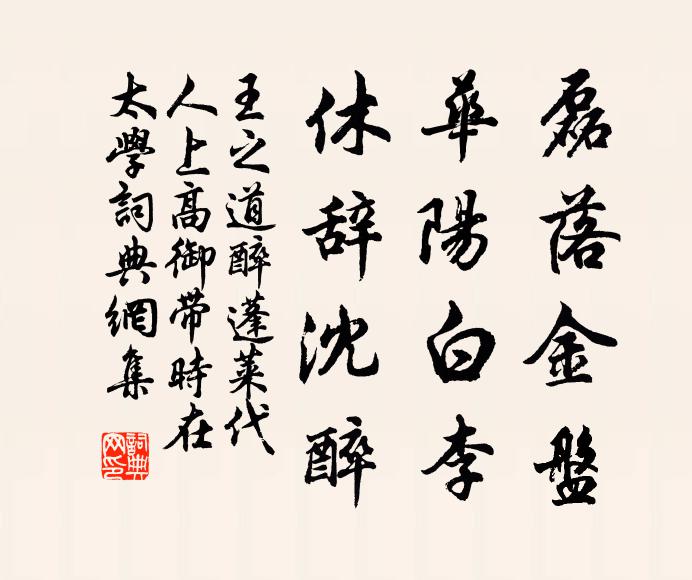 磊落金盤
華陽白李
休辞沈醉
王之道醉蓬莱代
人上高御帶時在
太學詞典網集
詞典网印